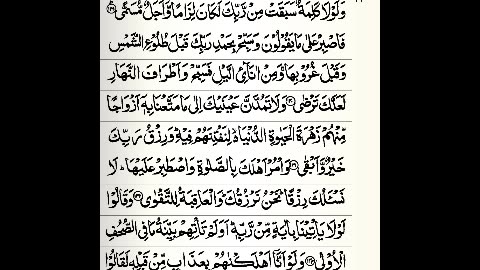 وَلَوْلَا كَلِمَةٌ سَبَقَتْ مِنْ رَّبِّكَ لَكَانَ لِزَامًا وَّاَجَلٌ مُّسَمًّى ﴿۱۲۹﴾
فَاصْبِرْ عَلٰى مَا يَقُوْلُوْنَ وَسَبِّحْ بِحَمْدِ رَبِّكَ قَبْلَ طُلُوْعِ الشَّمْسِ
وَقَبْلَ غُرُوْبِهَا ۚ وَمِنْ اٰنَآئِ الَّيْلِ فَسَبِّحْ وَاَطْرَافَ النَّهَارِ
لَعَلَّكَ تَرْضٰى ﴿۱۳۰﴾ وَلَا تَمُدَّنَّ عَيْنَيْكَ اِلٰى مَا مَتَّعْنَا بِهٖٓ اَزْوَاجًا
مِّنْهُمْ زَهْرَةَ الْحَيٰوةِ الدُّنْيَا ۙ لِنَفْتِنَهُمْ فِيْهِ ؕ وَرِزْقُ رَبِّكَ
خَيْرٌ وَّاَبْقٰى ﴿۱۳۱﴾ وَاْمُرْ اَهْلَكَ بِالصَّلٰوةِ وَاصْطَبِرْ عَلَيْهَا ؕ لَا
نَسْـَٔلُكَ رِزْقًا ؕ نَحْنُ نَرْزُقُكَ ؕ وَالْعَاقِبَةُ لِلتَّقْوٰى ﴿۱۳۲﴾ وَقَالُوْا
لَوْلَا يَاْتِيْنَا بِاٰيَةٍ مِّنْ رَّبِّهٖ ؕ اَوَلَمْ تَاْتِهِمْ بَيِّنَةُ مَا فِى الصُّحُفِ
الْاُوْلٰى ﴿۱۳۳﴾ وَلَوْ اَنَّآ اَهْلَكْنٰهُمْ بِعَذَابٍ مِّنْ قَبْلِهٖ لَقَالُوْا